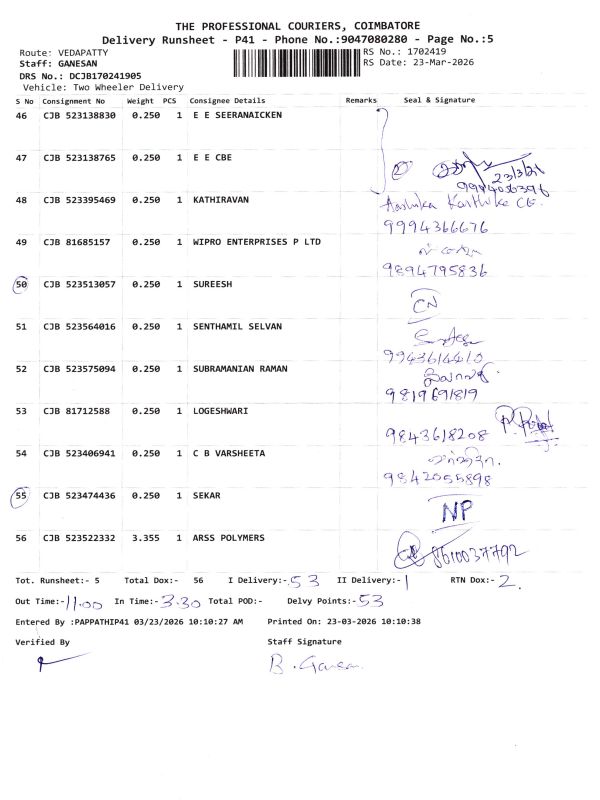 THE PROFESSIONAL COURIERS, COIMBATORE
Delivery Runsheet - P41 - Phone No.:9047080280 - Page No.:5
Route: VEDAPATTY RS No.: 1702419
Staff: GANESAN RS Date: 23-Mar-2026
DRS No.: DCJB170241905
Vehicle: Two Wheeler Delivery
S No Consignment No Weight PCS Consignee Details Remarks Seal & Signature
46 CJB 523138830 0.250 1 E E SEERANAICKEN
47 CJB 523138765 0.250 1 E E CBE
23/3/26
48 CJB 523395469 0.250 1 KATHIRAVAN
9994366676
49 CJB 81685157 0.250 1 WIPRO ENTERPRISES P LTD
9894795836
50 CJB 523513057 0.250 1 SUREESH
CN
51 CJB 523564016 0.250 1 SENTHAMIL SELVAN
9943614410
52 CJB 523575094 0.250 1 SUBRAMANIAN RAMAN
9819691819
53 CJB 81712588 0.250 1 LOGESHWARI
9843618208
54 CJB 523406941 0.250 1 C B VARSHEETA
9842055898
55 CJB 523474436 0.250 1 SEKAR
NP
56 CJB 523522332 3.355 1 ARSS POLYMERS
8610037792
Tot. Runsheet:- 5 Total Dox:- 56 I Delivery:- 53 II Delivery:- 1 RTN Dox:- 2
Out Time:- 11.00 In Time:- 3.30 Total POD:- Delvy Points:- 53
Entered By :PAPPATHIP41 03/23/2026 10:10:27 AM Printed On: 23-03-2026 10:10:38
Verified By Staff Signature
B. Ganesan